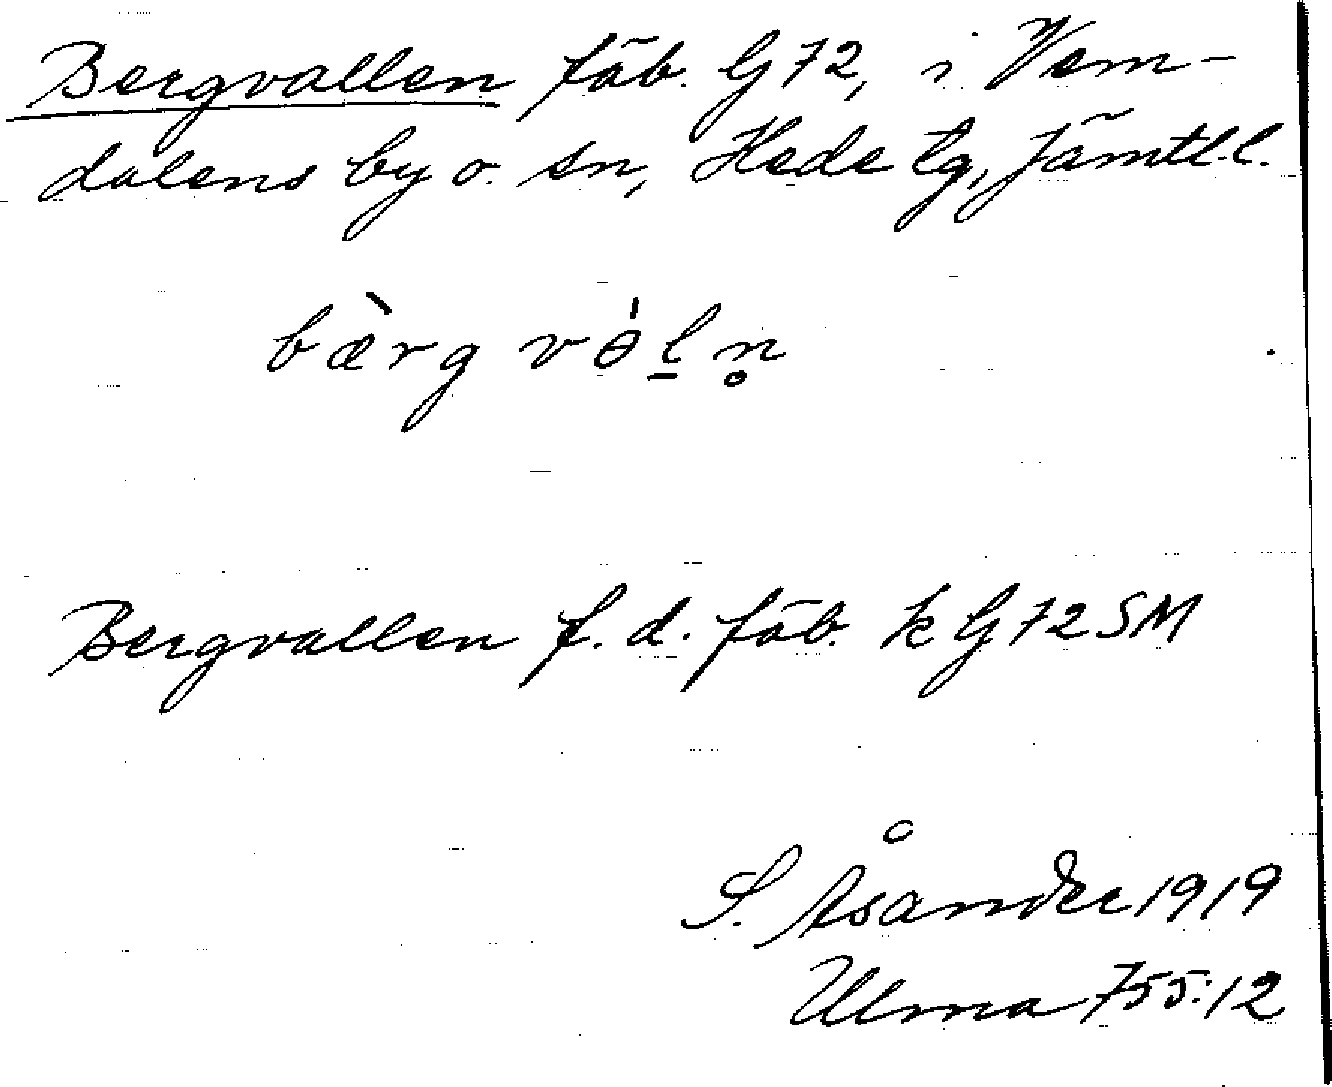 Bergvallen fäb. G 72, i Vem-
dalens by o. sn, Hede tg, Jämtl.l.
bæ̀rg vɵ̍l̠n̥
Bergvallen f. d. fäb. k G 72 SM
S. Åsander 1919
Ulma 755:12